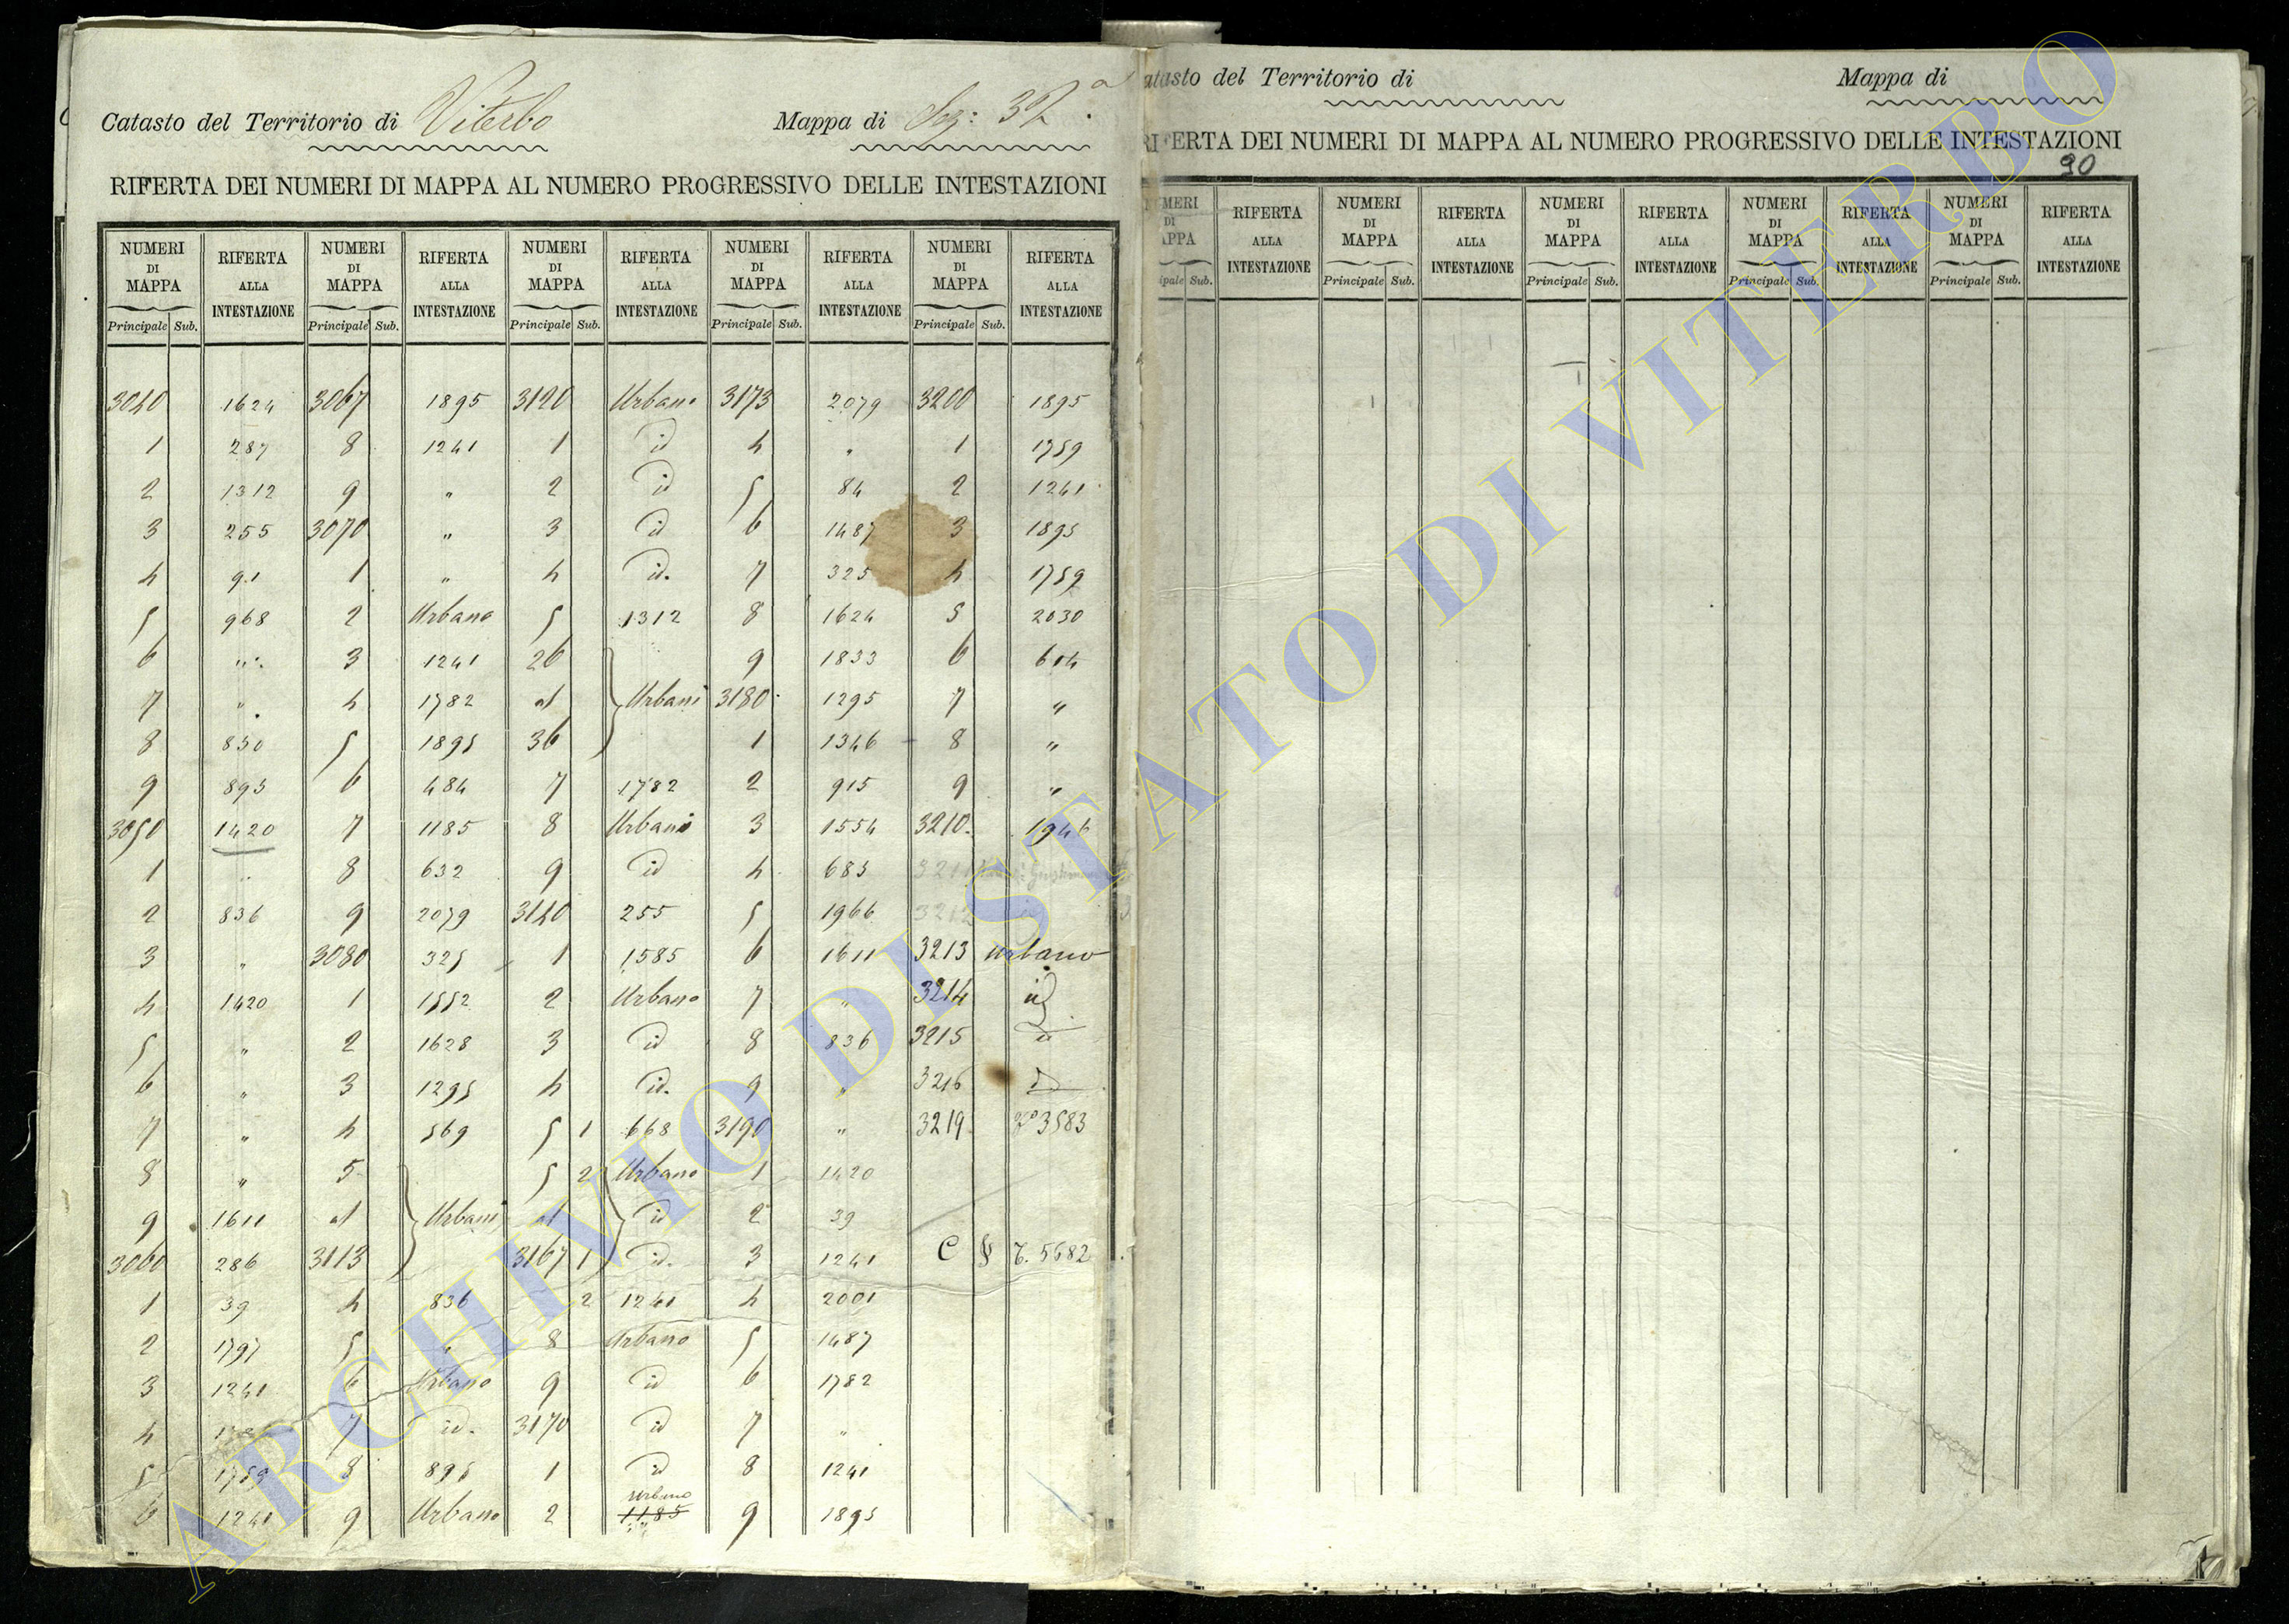 Catasto del Territorio di Viterbo Mappa di Sez: 32.a
RIFERTA DEI NUMERI DI MAPPA AL NUMERO PROGRESSIVO DELLE INTESTAZIONI
NUMERI DI MAPPA RIFERTA ALLA INTESTAZIONE NUMERI DI MAPPA RIFERTA ALLA INTESTAZIONE NUMERI DI MAPPA RIFERTA ALLA INTESTAZIONE NUMERI DI MAPPA RIFERTA ALLA INTESTAZIONE NUMERI DI MAPPA RIFERTA ALLA INTESTAZIONE
Principale Sub. Principale Sub. Principale Sub. Principale Sub. Principale Sub.
3040 1624 3067 1895 3120 Urbano 3173 2079 3200 1895
1 287 8 1241 1 id 4 " 1 1759
2 1312 9 " 2 id 5 84 2 1241
3 255 3070 " 3 id 6 1487 3 1895
4 91 1 " 4 id. 7 325 4 1759
5 968 2 Urbano 5 1312 8 1624 5 2030
6 " 3 1241 26 9 1833 6 604
7 " 4 1782 al Urbani 3180 1295 7 "
8 850 5 1895 36 1 1346 8 "
9 895 6 484 7 1782 2 915 9 "
3050 1420 7 1185 8 Urbano 3 1554 3210 1946
1 " 8 632 9 id 4 685 3211
2 836 9 2079 3140 255 5 1966 3212
3 " 3080 325 1 1585 6 1611 3213 urbano
4 1420 1 1552 2 Urbano 7 " 3214 id
5 " 2 1628 3 id 8 836 3215 id
6 " 3 1295 4 id. 9 " 3216 id
7 " 4 569 5 1 668 3190 " 3219 3583
8 " 5 5 2 Urbano 1 1420
9 1611 al Urbani al id 2 39
3060 286 3113 3167 1 id. 3 1241 C § 5682
1 39 4 836 2 1241 4 2001
2 1797 5 " 8 Urbano 5 1487
3 1241 6 Urbano 9 id 6 1782
4 7 id. 3170 id 7 "
5 1759 8 895 1 id 8 1241
6 1241 9 Urbano 2 Urbano 1185 9 1895
Catasto del Territorio di Mappa di
RIFERTA DEI NUMERI DI MAPPA AL NUMERO PROGRESSIVO DELLE INTESTAZIONI
90
NUMERI DI MAPPA RIFERTA ALLA INTESTAZIONE NUMERI DI MAPPA RIFERTA ALLA INTESTAZIONE NUMERI DI MAPPA RIFERTA ALLA INTESTAZIONE NUMERI DI MAPPA RIFERTA ALLA INTESTAZIONE NUMERI DI MAPPA RIFERTA ALLA INTESTAZIONE
Principale Sub. Principale Sub. Principale Sub. Principale Sub. Principale Sub.
ARCHIVIO DI STATO DI VITERBO